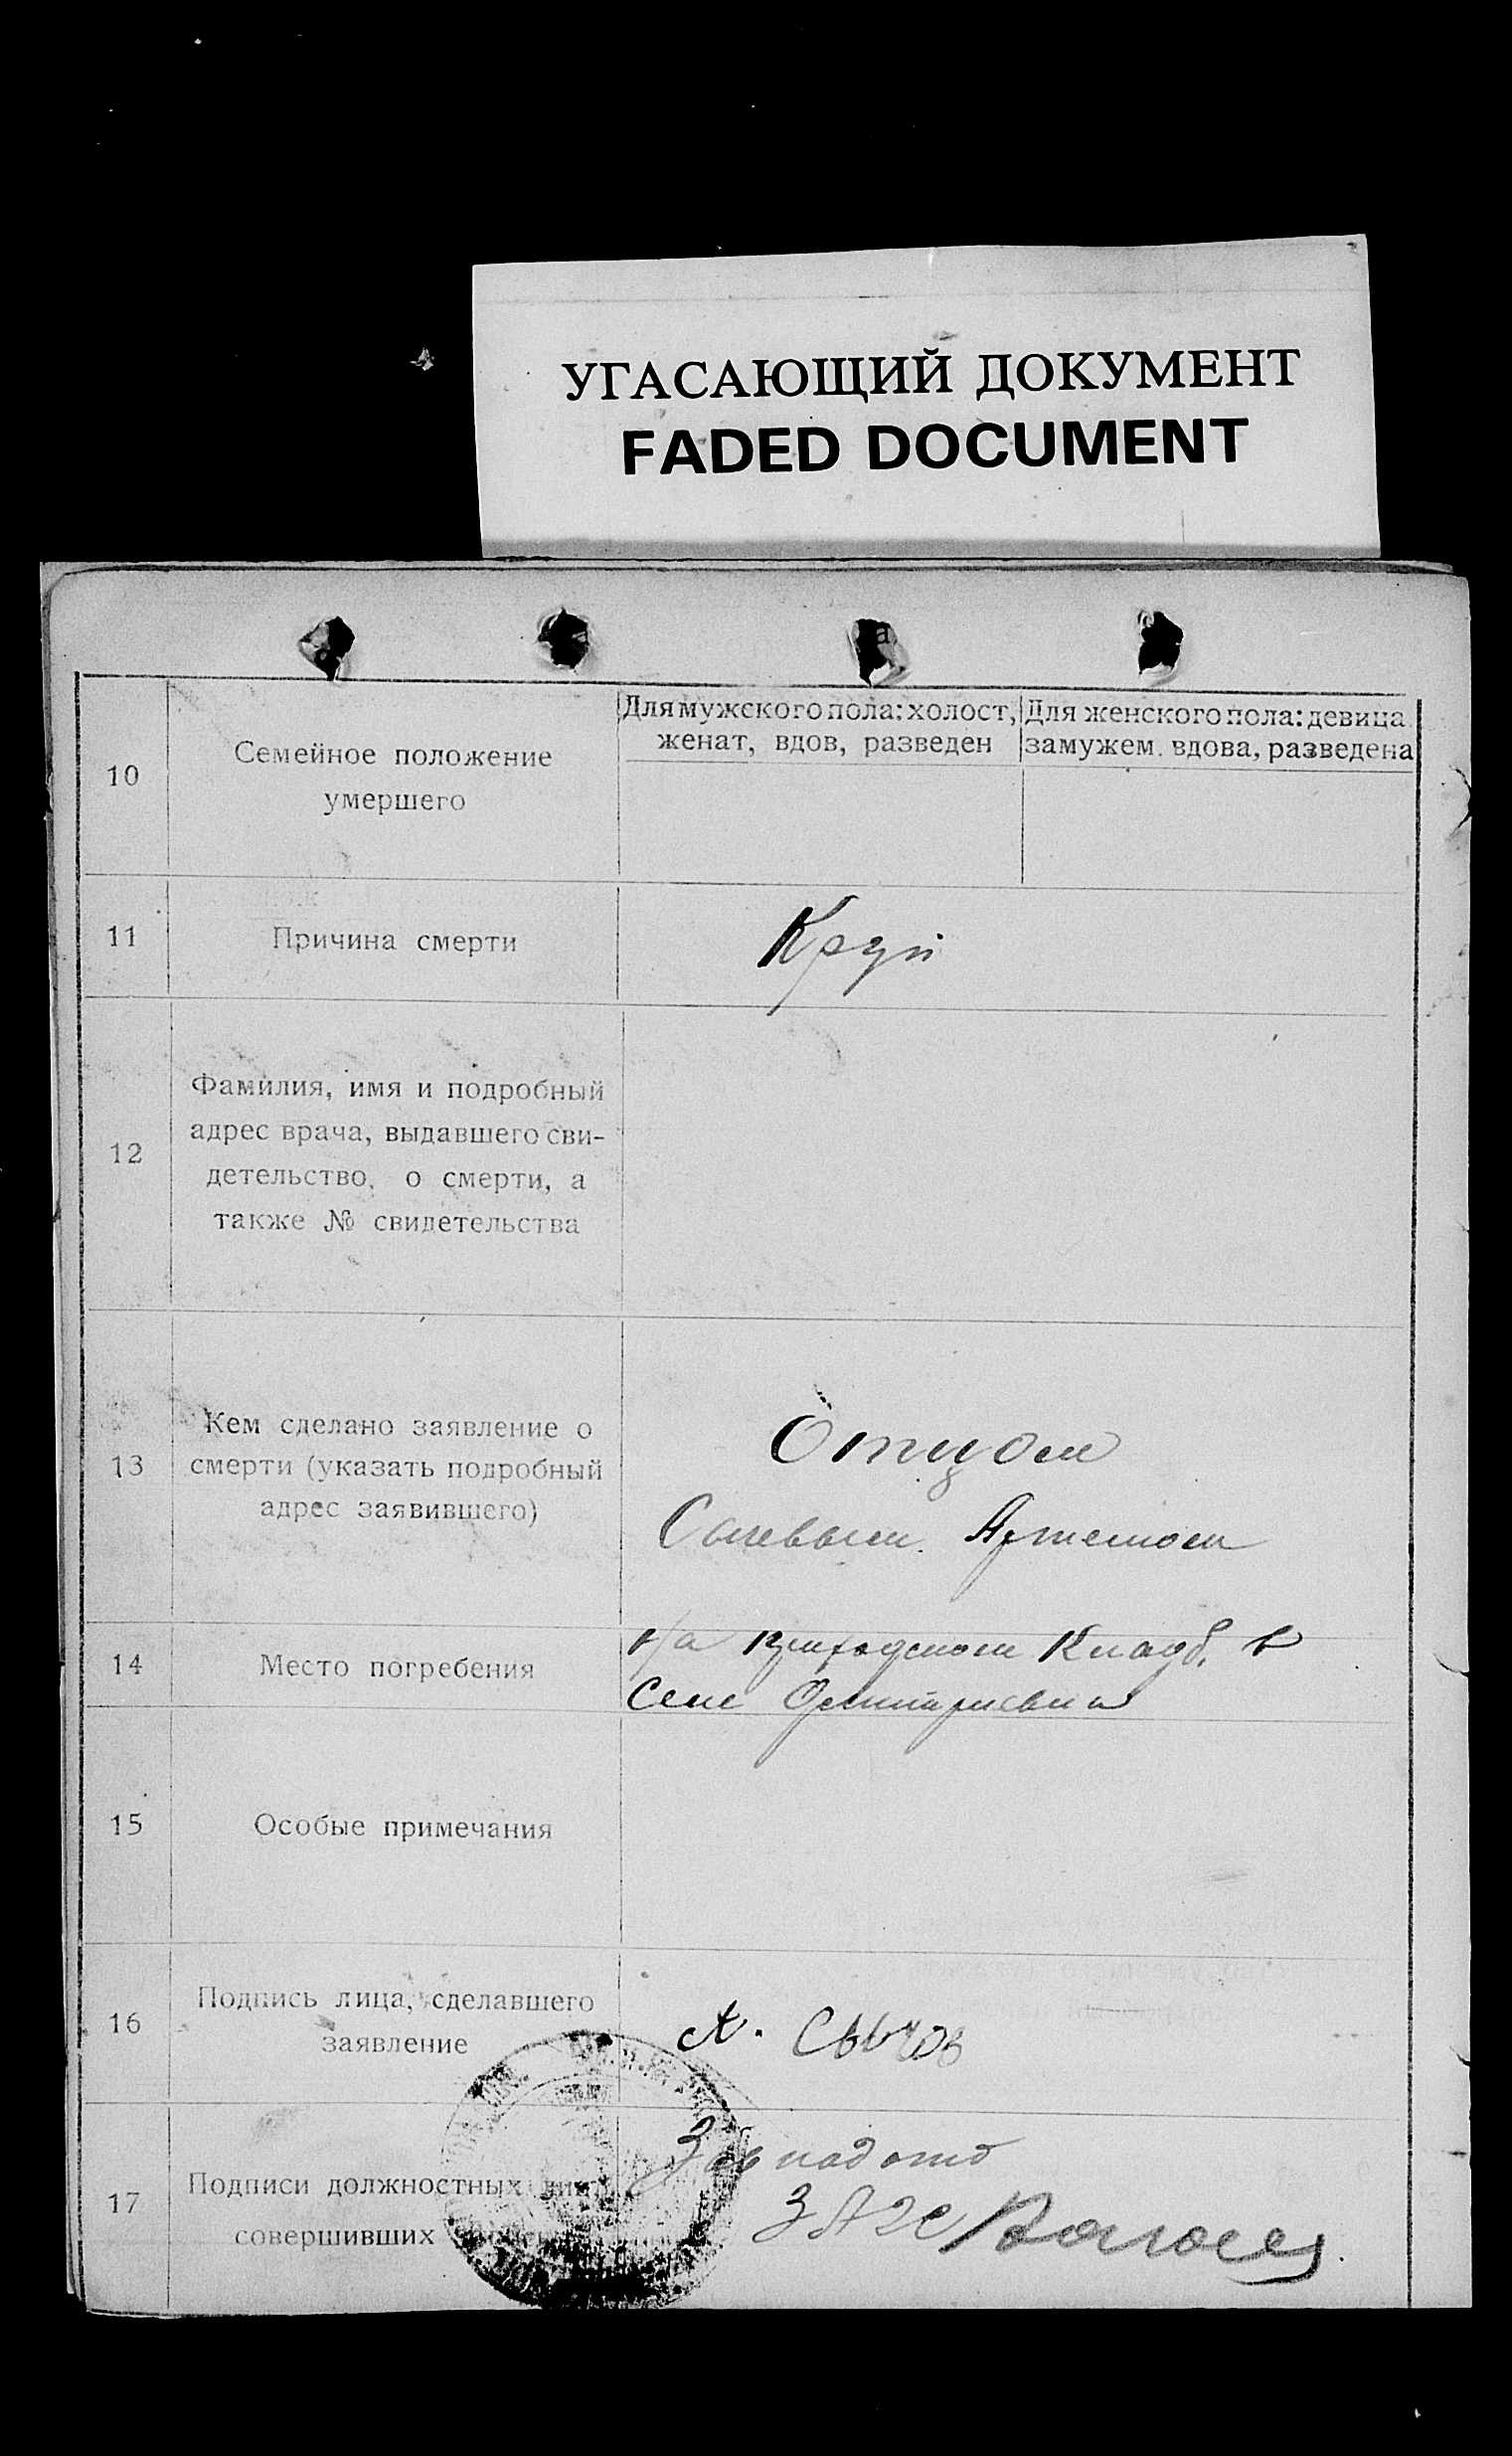 УГАСАЮЩИЙ ДОКУМЕНТ
FADED DOCUMENT
10
Семейное положение
умершего
Для мужского пола: холост,
женат, вдов, разведен
Для женского пола: девица
замужем. вдова, разведена
11
Причина смерти
Круп
12
Фамилия, имя и подробный
адрес врача, выдавшего сви-
детельство, о смерти, а
также № свидетельства
13
Кем сделано заявление о
смерти (указать подробный
адрес заявившего)
Отцом
Сычевым. Артемом
14
Место погребения
На приходском кладб. в
селе Дмитриевка
15
Особые примечания
16
Подпись лица, сделавшего
заявление
А. Сычов
17
Подписи должностных
совершивших
Зав
ЗАГС